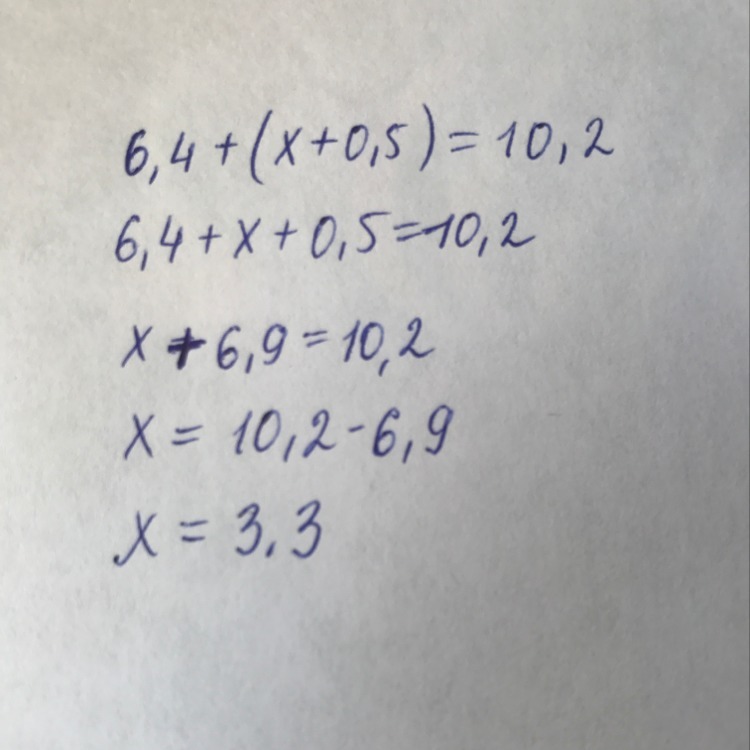 6,4+(x+0,5)=10,2
6,4+x+0,5=10,2
x+6,9=10,2
x=10,2-6,9
x=3.3